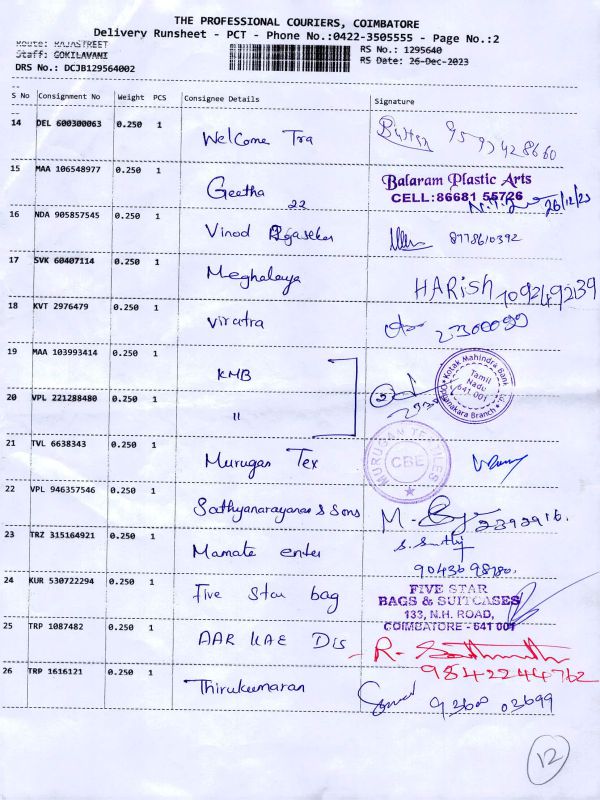 THE PROFESSIONAL COURIERS, COIMBATORE
Delivery Runsheet - PCT - Phone No.:0422-3505555 - Page No.:2
Route: RAJASTREET
Staff: GOKILAVANI
DRS No.: DCJB129564002
RS No.: 1295640
RS Date: 26-Dec-2023
S No Consignment No Weight PCS Consignee Details Signature
14 DEL 600300063 0.250 1 Welcome Tra
15 MAA 106548977 0.250 1 Geetha 22 Balaram Plastic Arts
CELL:86681 55726
26/12/23
16 NDA 905857545 0.250 1 Vinod 8778610392
17 SVK 60407114 0.250 1 Meghalaya HARiSH 7092492139
18 KVT 2976479 0.250 1 Viratra 2300099
19 MAA 103993414 0.250 1 KMB Kotak Mahindra Bank
Tamil
Nadu
641 001
20 VPL 221288480 0.250 1 "
21 TVL 6638343 0.250 1 Murugan Tex MURUGAN TEXTILES
CBE
22 VPL 946357546 0.250 1 Sathyanarayanas Sons 2392916.
23 TRZ 315164921 0.250 1 Mamate enter
9043698980.
24 KUR 530722294 0.250 1 Five Star bag FIVE STAR
BAGS & SUITCASES
133, N.H. ROAD,
COIMBATORE - 641 001
25 TRP 1087482 0.250 1 AAR KAE Dis R.
9842244762
26 TRP 1616121 0.250 1 Thirukumaran 9360 03699
12